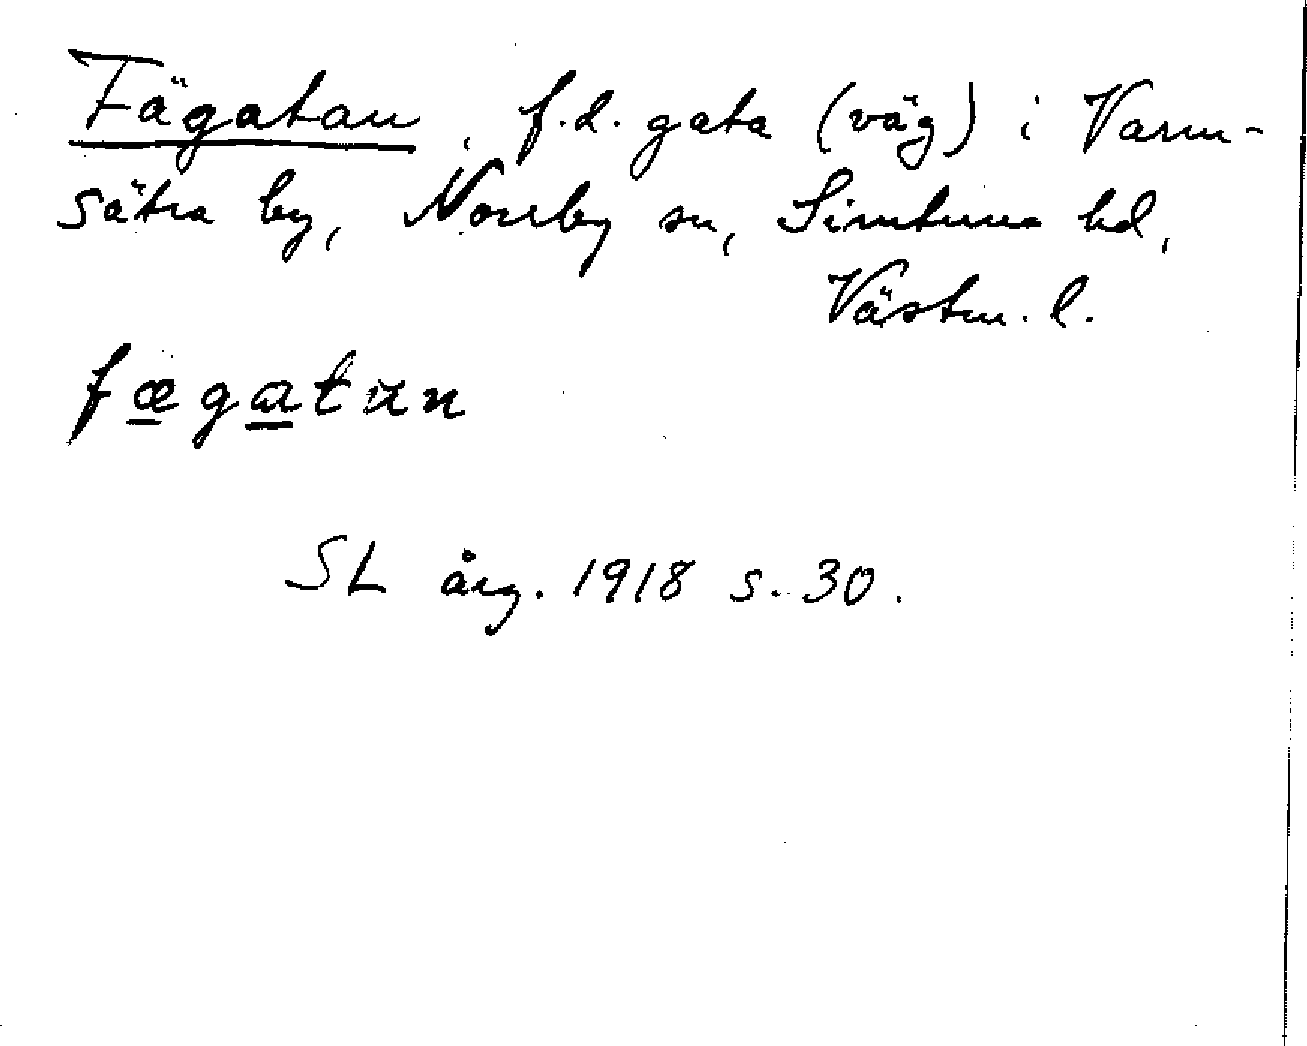 Fägatan, f.d. gata (väg) i Varm-
sätra by, Norrby sn, Simtuna hd,
Västm. l.
fægatan
SL årg. 1918 s. 30.